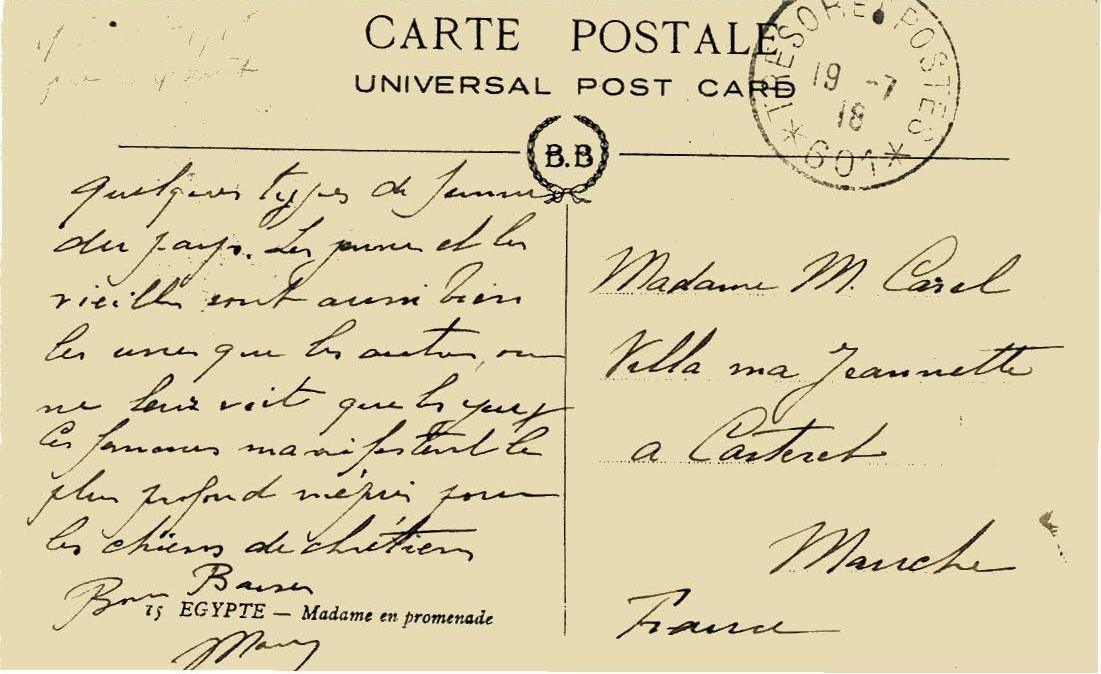 CARTE POSTALE
UNIVERSAL POST CARD
TRESOR ET POSTES
19 -7
18
* 601 *
B.B
quelques types de femmes
du pays. Les jeunes et les
vieilles sont aussi bien
les unes que les autres, on
ne leur voit que les yeux
Ces femmes manifestent le
plus profond mépris pour
les chiens de chrétiens
Bons Baisers
15 EGYPTE — Madame en promenade
Madame M. Carel
Villa ma Jeannette
a Carteret
Manche
France